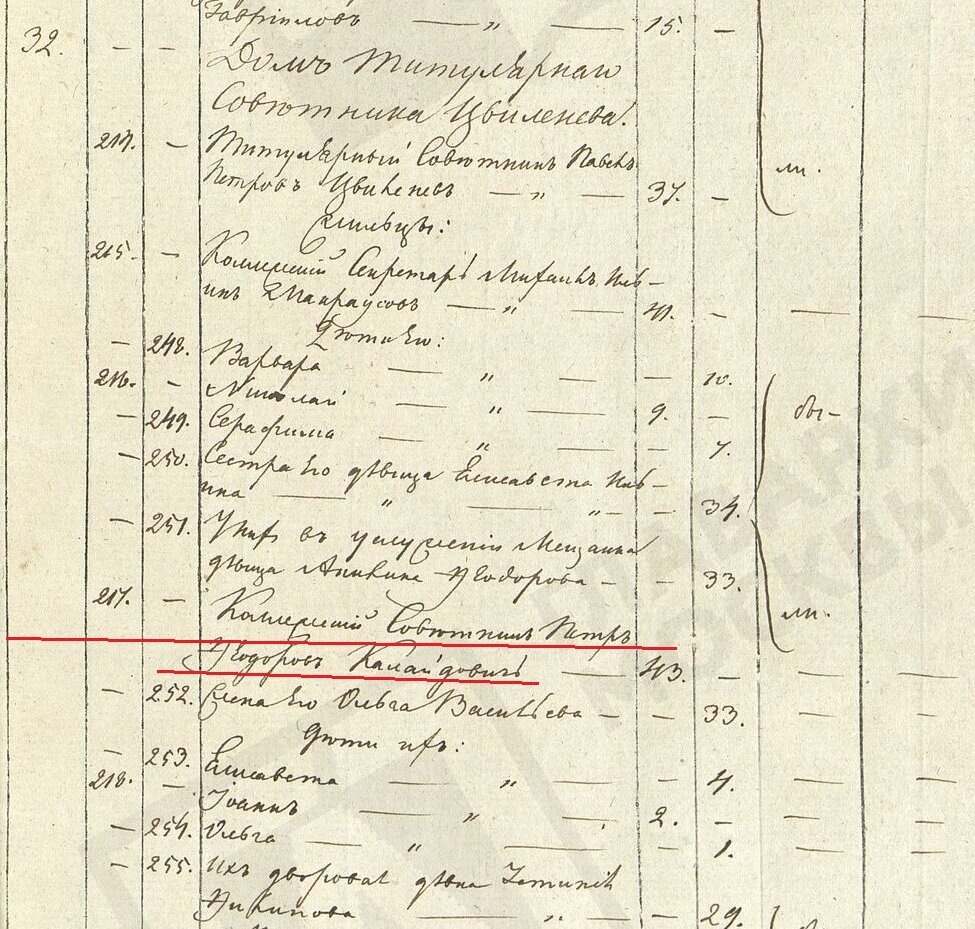 Гавриловъ — „ — 15. —
32. — — Домъ Титулярнаго
Совѣтника Цвиленева.
214. — Титулярный Совѣтникъ Павелъ
Петровъ Цвиленевъ — „ — 37. —
Жильцы:
215. — Коллежскій Секретарь Михаилъ
— „ — 41. —
Дѣти Его:
— 248. Варвара — „ — — 10.
216. — Николай — „ — 9. —
— 249. Серафима — „ — — 7.
— 250. Сестра Его дѣвица Елисавета
— „ — „ — — 34.
— 251. У нихъ въ услуженіи Мещанка
дѣвица Акилина Ѳеодорова — — 33.
217. — Коллежскій Совѣтникъ Петръ
Ѳеодоровъ Калайдовичь — 43. —
— 252. Жена Его Ольга Васильева — — 33.
Дѣти ихъ:
— 253. Елисавета — „ — — 4.
218. — Іоаннъ — „ — 2. —
— 254. Ольга — „ — — 1.
— 255. Ихъ дворовая дѣвка
Филипова — „ — — 29.